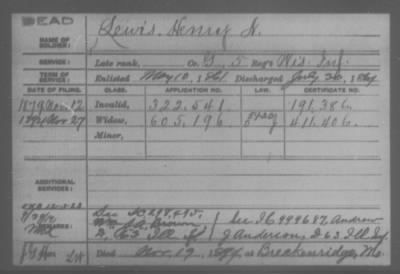 DEAD
NAME OF SOLDIER: Lewis, Henry H.
SERVICE: Late rank, Co. G, 5 Reg't Wis. Inf.
TERM OF SERVICE: Enlisted May 10, 1861 Discharged July 26, 1864
DATE OF FILING. CLASS. APPLICATION NO. LAW. CERTIFICATE NO.
1879 12 Invalid, 322.541 191.386
Nov 27 Widow, 605.196 411.406
Minor,
ADDITIONAL SERVICES:
REMARKS: Brown See I.C. 499687 Andrew
63 Ill. J Anderson, D 63 Ill Inf.
Died Nov. 19, at Breckenridge, Mo.